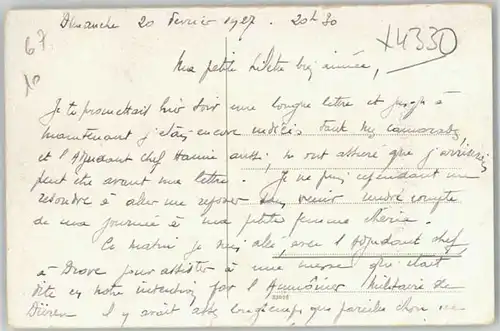 Dimanche 20 Fevrier 1927. 20h30
67
10
x4330
Ma petite Lilette bien aimée,
Je te promettais hier soir une longue lettre et jusqu'à
maintenant j'étais encore indécis tant mes camarades,
et l'Adjudant Chef aussi, m'ont assuré que j'arriverais
peut être avant ma lettre. Je ne puis cependant me
résoudre à aller me reposer sans venir rendre compte
de ma journée à ma petite femme chérie.
Ce matin je suis allé, avec l'adjudant chef,
à Drove pour assister à une messe qui était
dite en notre intention par l'Aumônier Militaire de
Düren. Il y avait assez longtemps que pareille chose ne